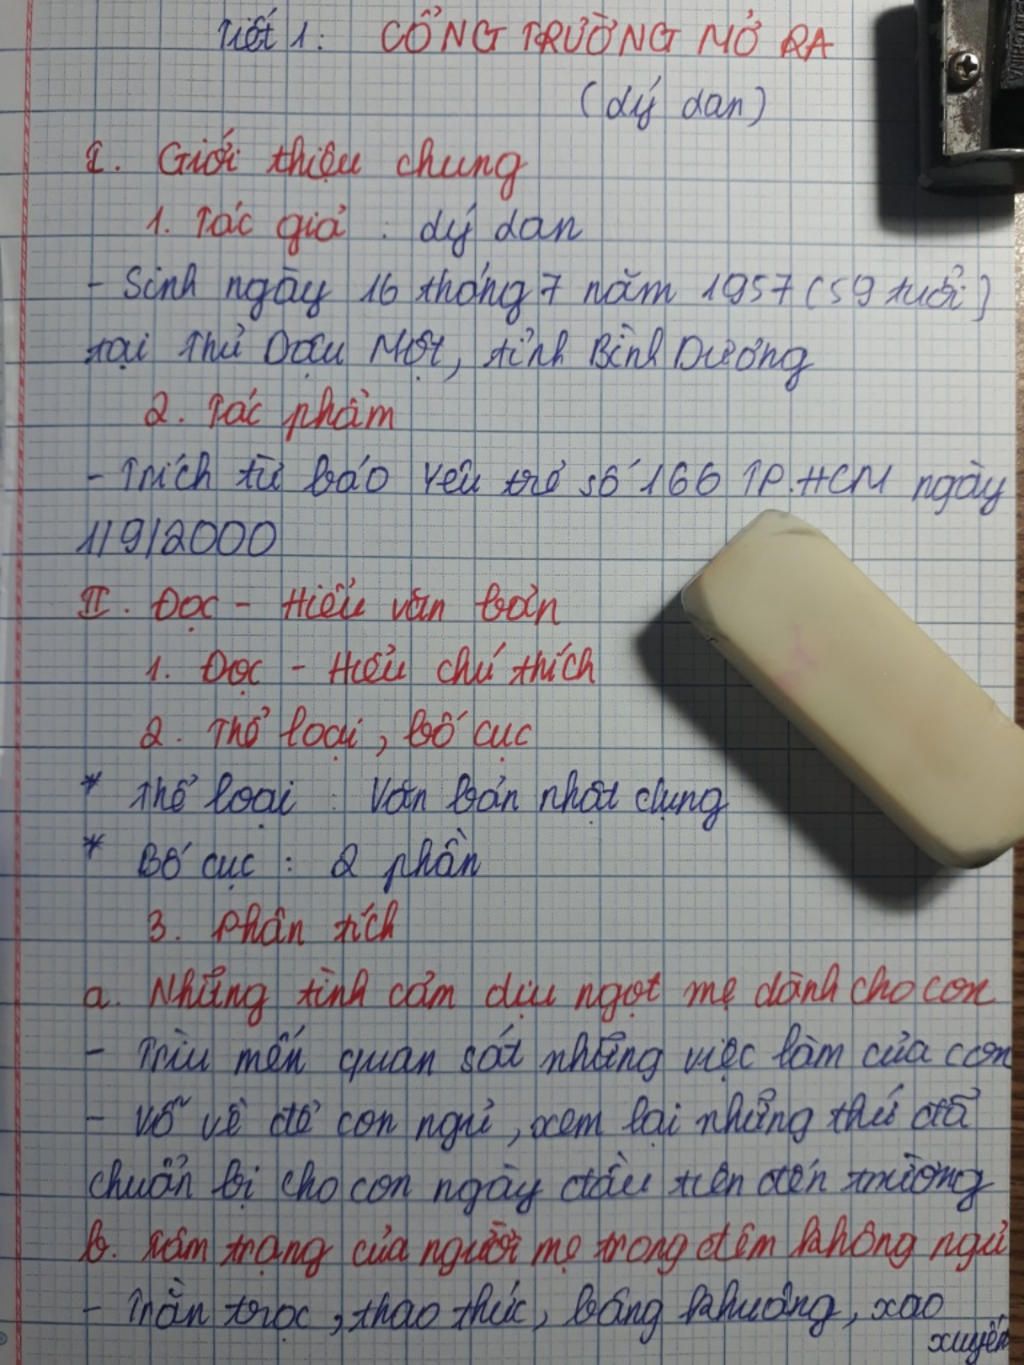 Tiết 1: CỔNG TRƯỜNG MỞ RA
(Lý Lan)
I. Giới thiệu chung
1. Tác giả : Lý Lan
- Sinh ngày 16 tháng 7 năm 1957 (59 tuổi)
tại Thủ Dầu Một, tỉnh Bình Dương
2. Tác phẩm
- Trích từ báo Yêu trẻ số 166 TP.HCM ngày
1/9/2000
II. Đọc - Hiểu văn bản
1. Đọc - Hiểu chú thích
2. Thể loại, bố cục
* Thể loại : Văn bản nhật dụng
* Bố cục : 2 phần
3. Phân tích
a. Những tình cảm dịu ngọt mẹ dành cho con
- Trìu mến quan sát những việc làm của con
- Vỗ về để con ngủ, xem lại những thứ đã
chuẩn bị cho con ngày đầu tiên đến trường
b. Tâm trạng của người mẹ trong đêm không ngủ
- Trằn trọc, thao thức, bâng khuâng, xao
xuyến